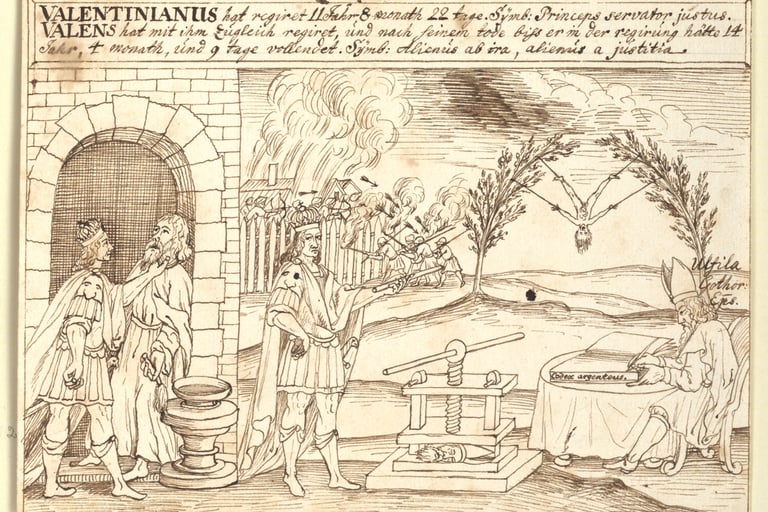 VALENTINIANUS hat regiret 11 Jahr 8 monath 22 tage. Symb: Princeps servator justus.
VALENS hat mit ihm zugleich regiret, und nach seinem tode biss er in der regirung hatte 14
Jahr, 4 monath, und 9 tage vollendet. Symb: Alienus ab ira, alienus a justitia.
Ulfila
Gothor:
Eps.
Codex argenteus.
2